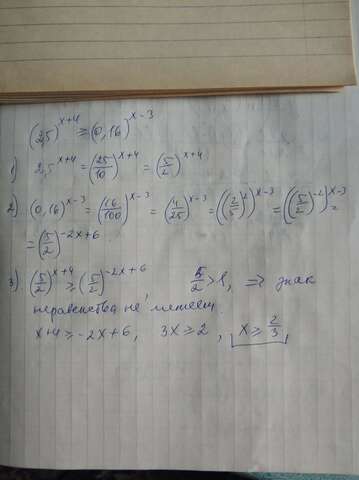 (2,5)^{x+4} ≥ (0,16)^{x-3}
1) 2,5^{x+4} = (25/10)^{x+4} = (5/2)^{x+4}
2) (0,16)^{x-3} = (16/100)^{x-3} = (4/25)^{x-3} = ((2/5)^2)^{x-3} = ((5/2)^{-2})^{x-3} =
= (5/2)^{-2x+6}
3) (5/2)^{x+4} ≥ (5/2)^{-2x+6} 5/2 > 1, => знак
неравенства не меняем.
x+4 ≥ -2x+6, 3x ≥ 2, x ≥ 2/3,